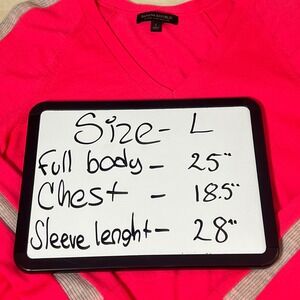 Size - L
Full body - 25"
Chest - 18.5"
Sleeve lenght - 28"